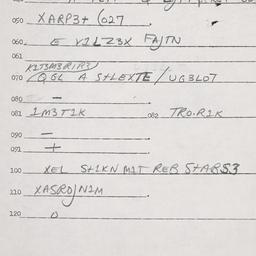 050 XARP3+ (027
060 E V1LZ3X FAJTN
061
K1T3M3R1R3
070 /QGL A S+LEXTE / UG3LO7
080 —
081 1M3T1K 082 TRO.R1K
090 —
091 +
100 XEL S+1KN M1T RER S+ARS3
110 XASRO)N1M
120 O